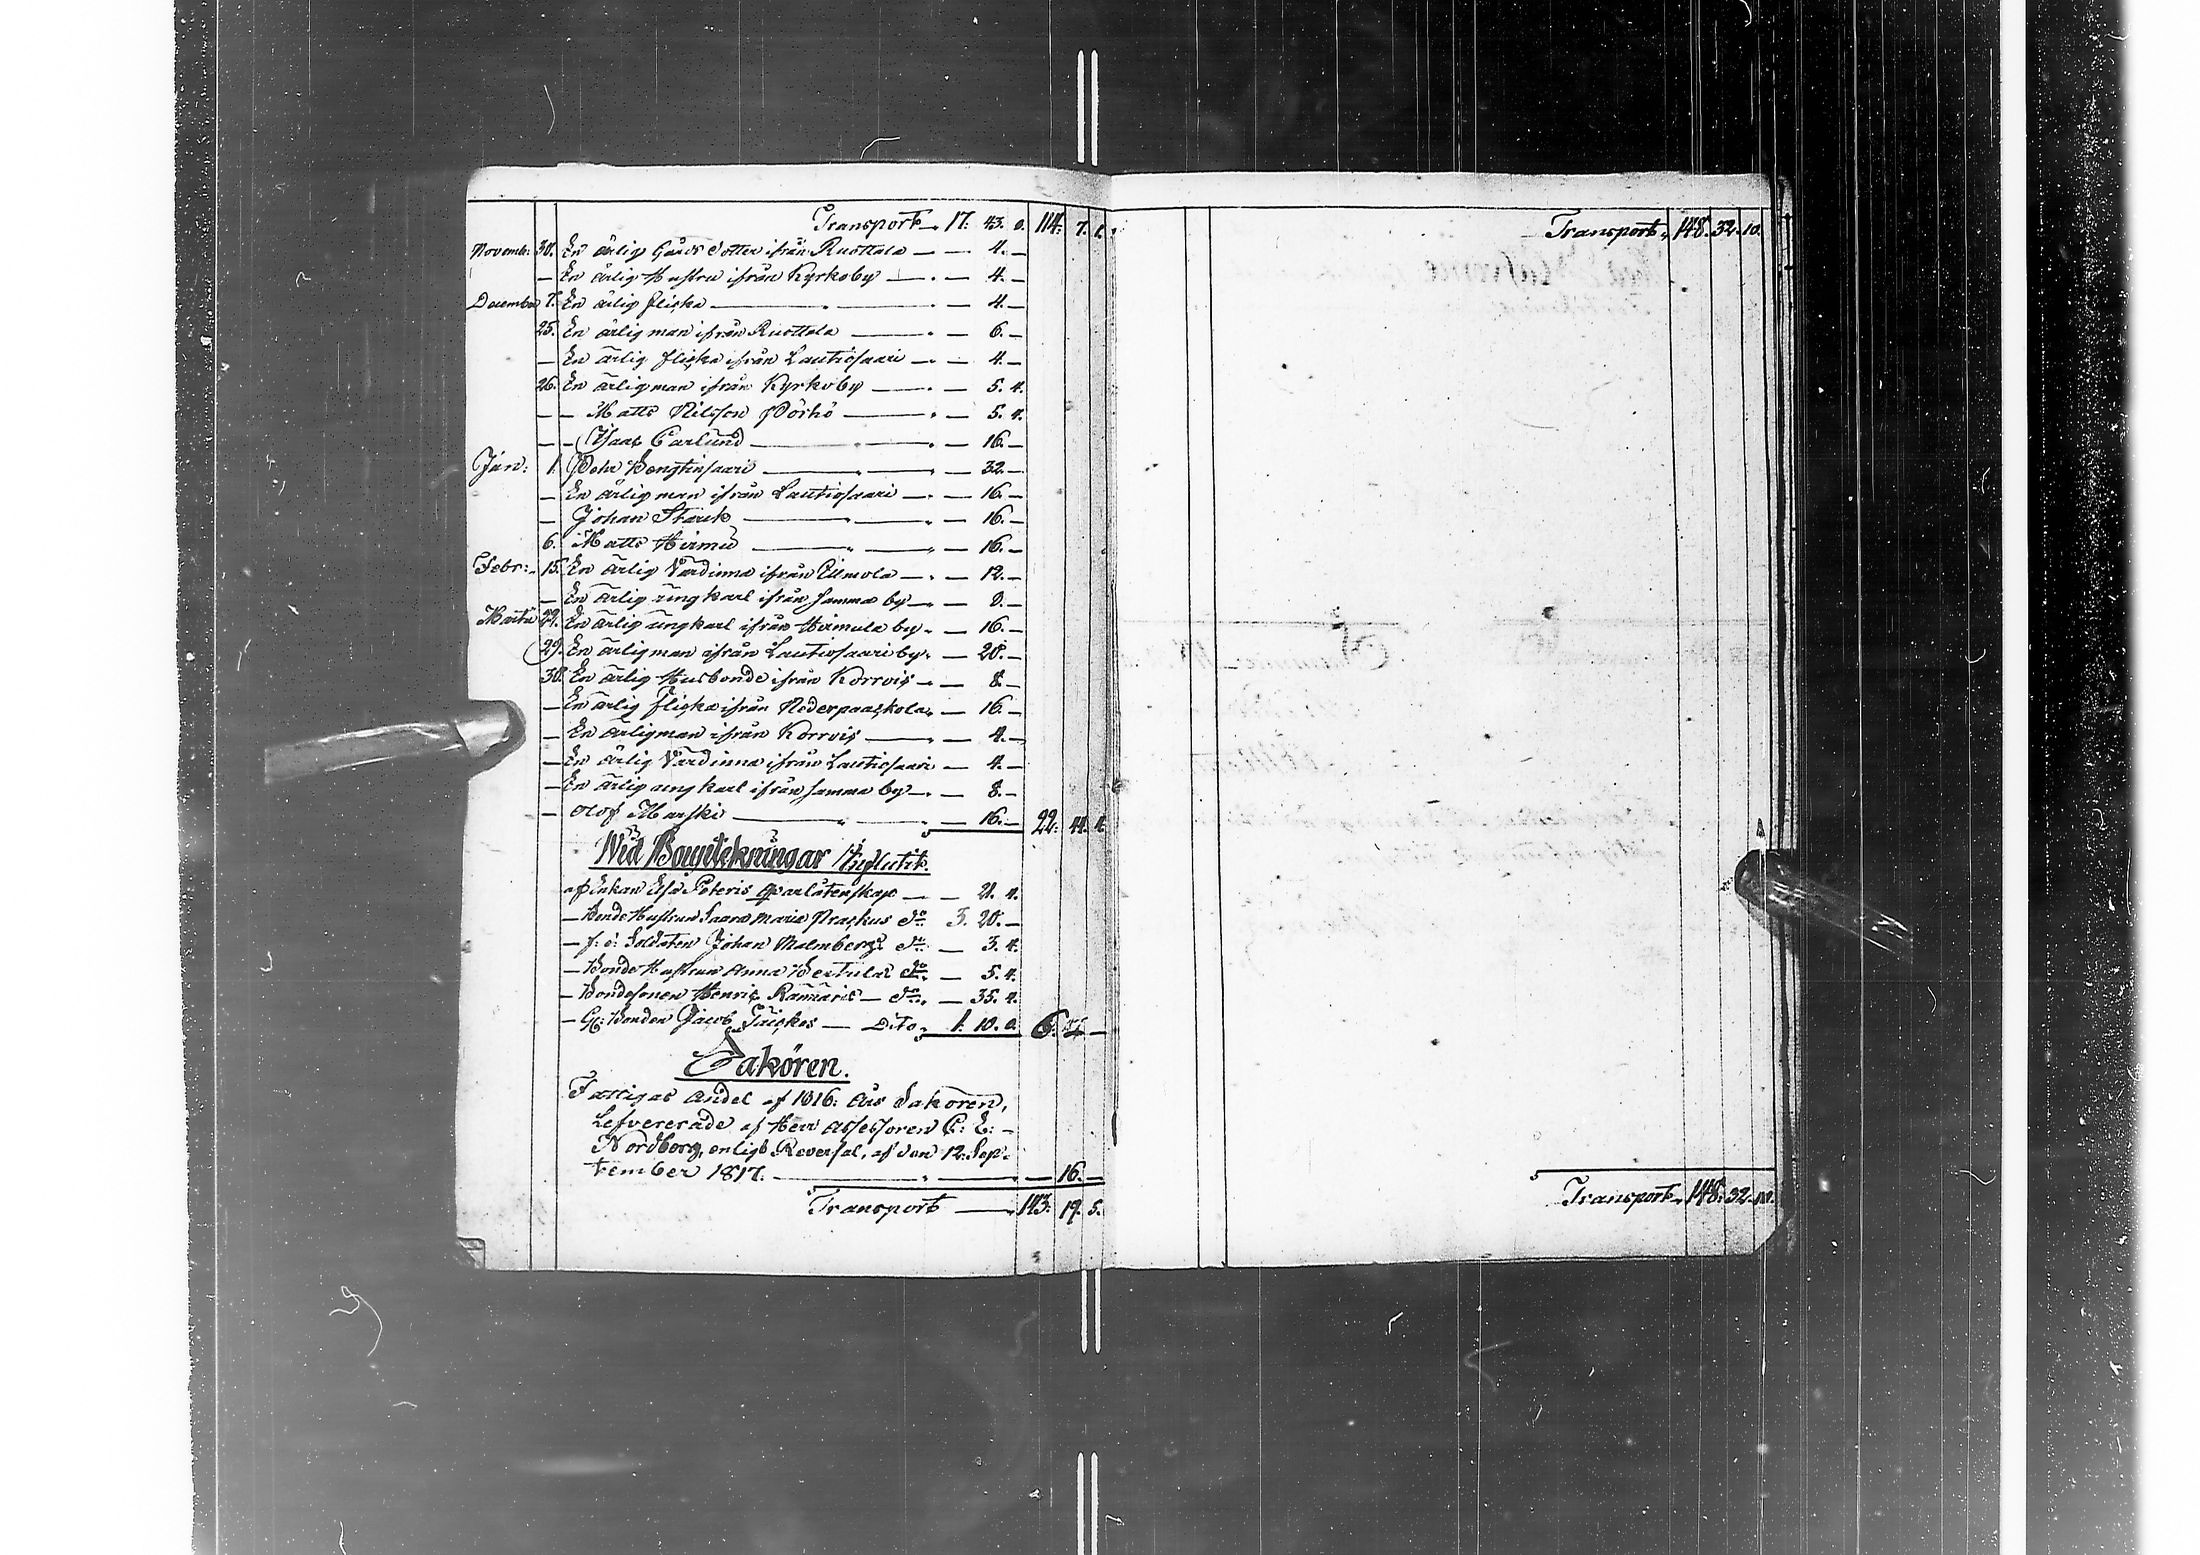 Transport 17. 43. 0. 114. 7. 1.
Novemb: 30. En ärlig Gårds Dotter ifrån Rusttala — 4. —
— En ärlig Hustru ifrån Kyrkoby — 4. —
December 7. En ärlig flicka — 4. —
25. En ärlig man ifrån Rusttala — 6. —
— En ärlig flicka ifrån Lautiosaari — 4. —
26. En ärlig man ifrån Kyrkoby — 5. 4.
— — Matts Nilsson Pörhö — 5. 4.
— — Isaac Carlund — 16. —
Jan: 1. Pehr Bengtinsaari — 32. —
— En ärlig man ifrån Lautiosaari — 16. —
— Johan Starck — 16. —
6. Matts Hirmu — 16. —
Febr: 15. En ärlig Värdinna ifrån Ellmola — 12. —
— En ärlig ungkarl ifrån samma by — 8. —
Martii En ärlig ungkarl ifrån Hirmula by — 16. —
29. En ärlig man ifrån Lautiosaari by — 20. —
30. En ärlig Husbonde ifrån Korrvis — 8. —
— En ärlig Flicka ifrån Nederpaackola — 16. —
— En ärlig man ifrån Korrvis — 4. —
— En ärlig Värdinna ifrån Lautiosaari — 4. —
— En ärlig ungkarl ifrån samma by — 8. —
— Olof Marski — 16. — 22. 44. 4.
Vid Bouptekningar
af Enkan Elsa Peteris qvarlåtenskap — 21. 4.
— Bonde Hustrun Saara Maria Prackus do 3. 20. —
— f: d: Soldaten Johan Malmbergs do — 3. 4.
— Bonde Hustrun Anna Bertulas do — 5. 4.
— Bondesonen Henric — do — 35. 4.
— Gl: Bonden Jacob — Dito 1. 10. 8. 6. —
Sakören.
Fattigas andel af 1816: års Sakören,
Lefvererade af Herr Assessoren C: E:
Nordberg, enligt Reversal, af den 12. Sep-
tember 1817. — 16. —
Transport — 143. 19. 5.
Transport 148. 32. 10.
Transport 148. 32. 10.